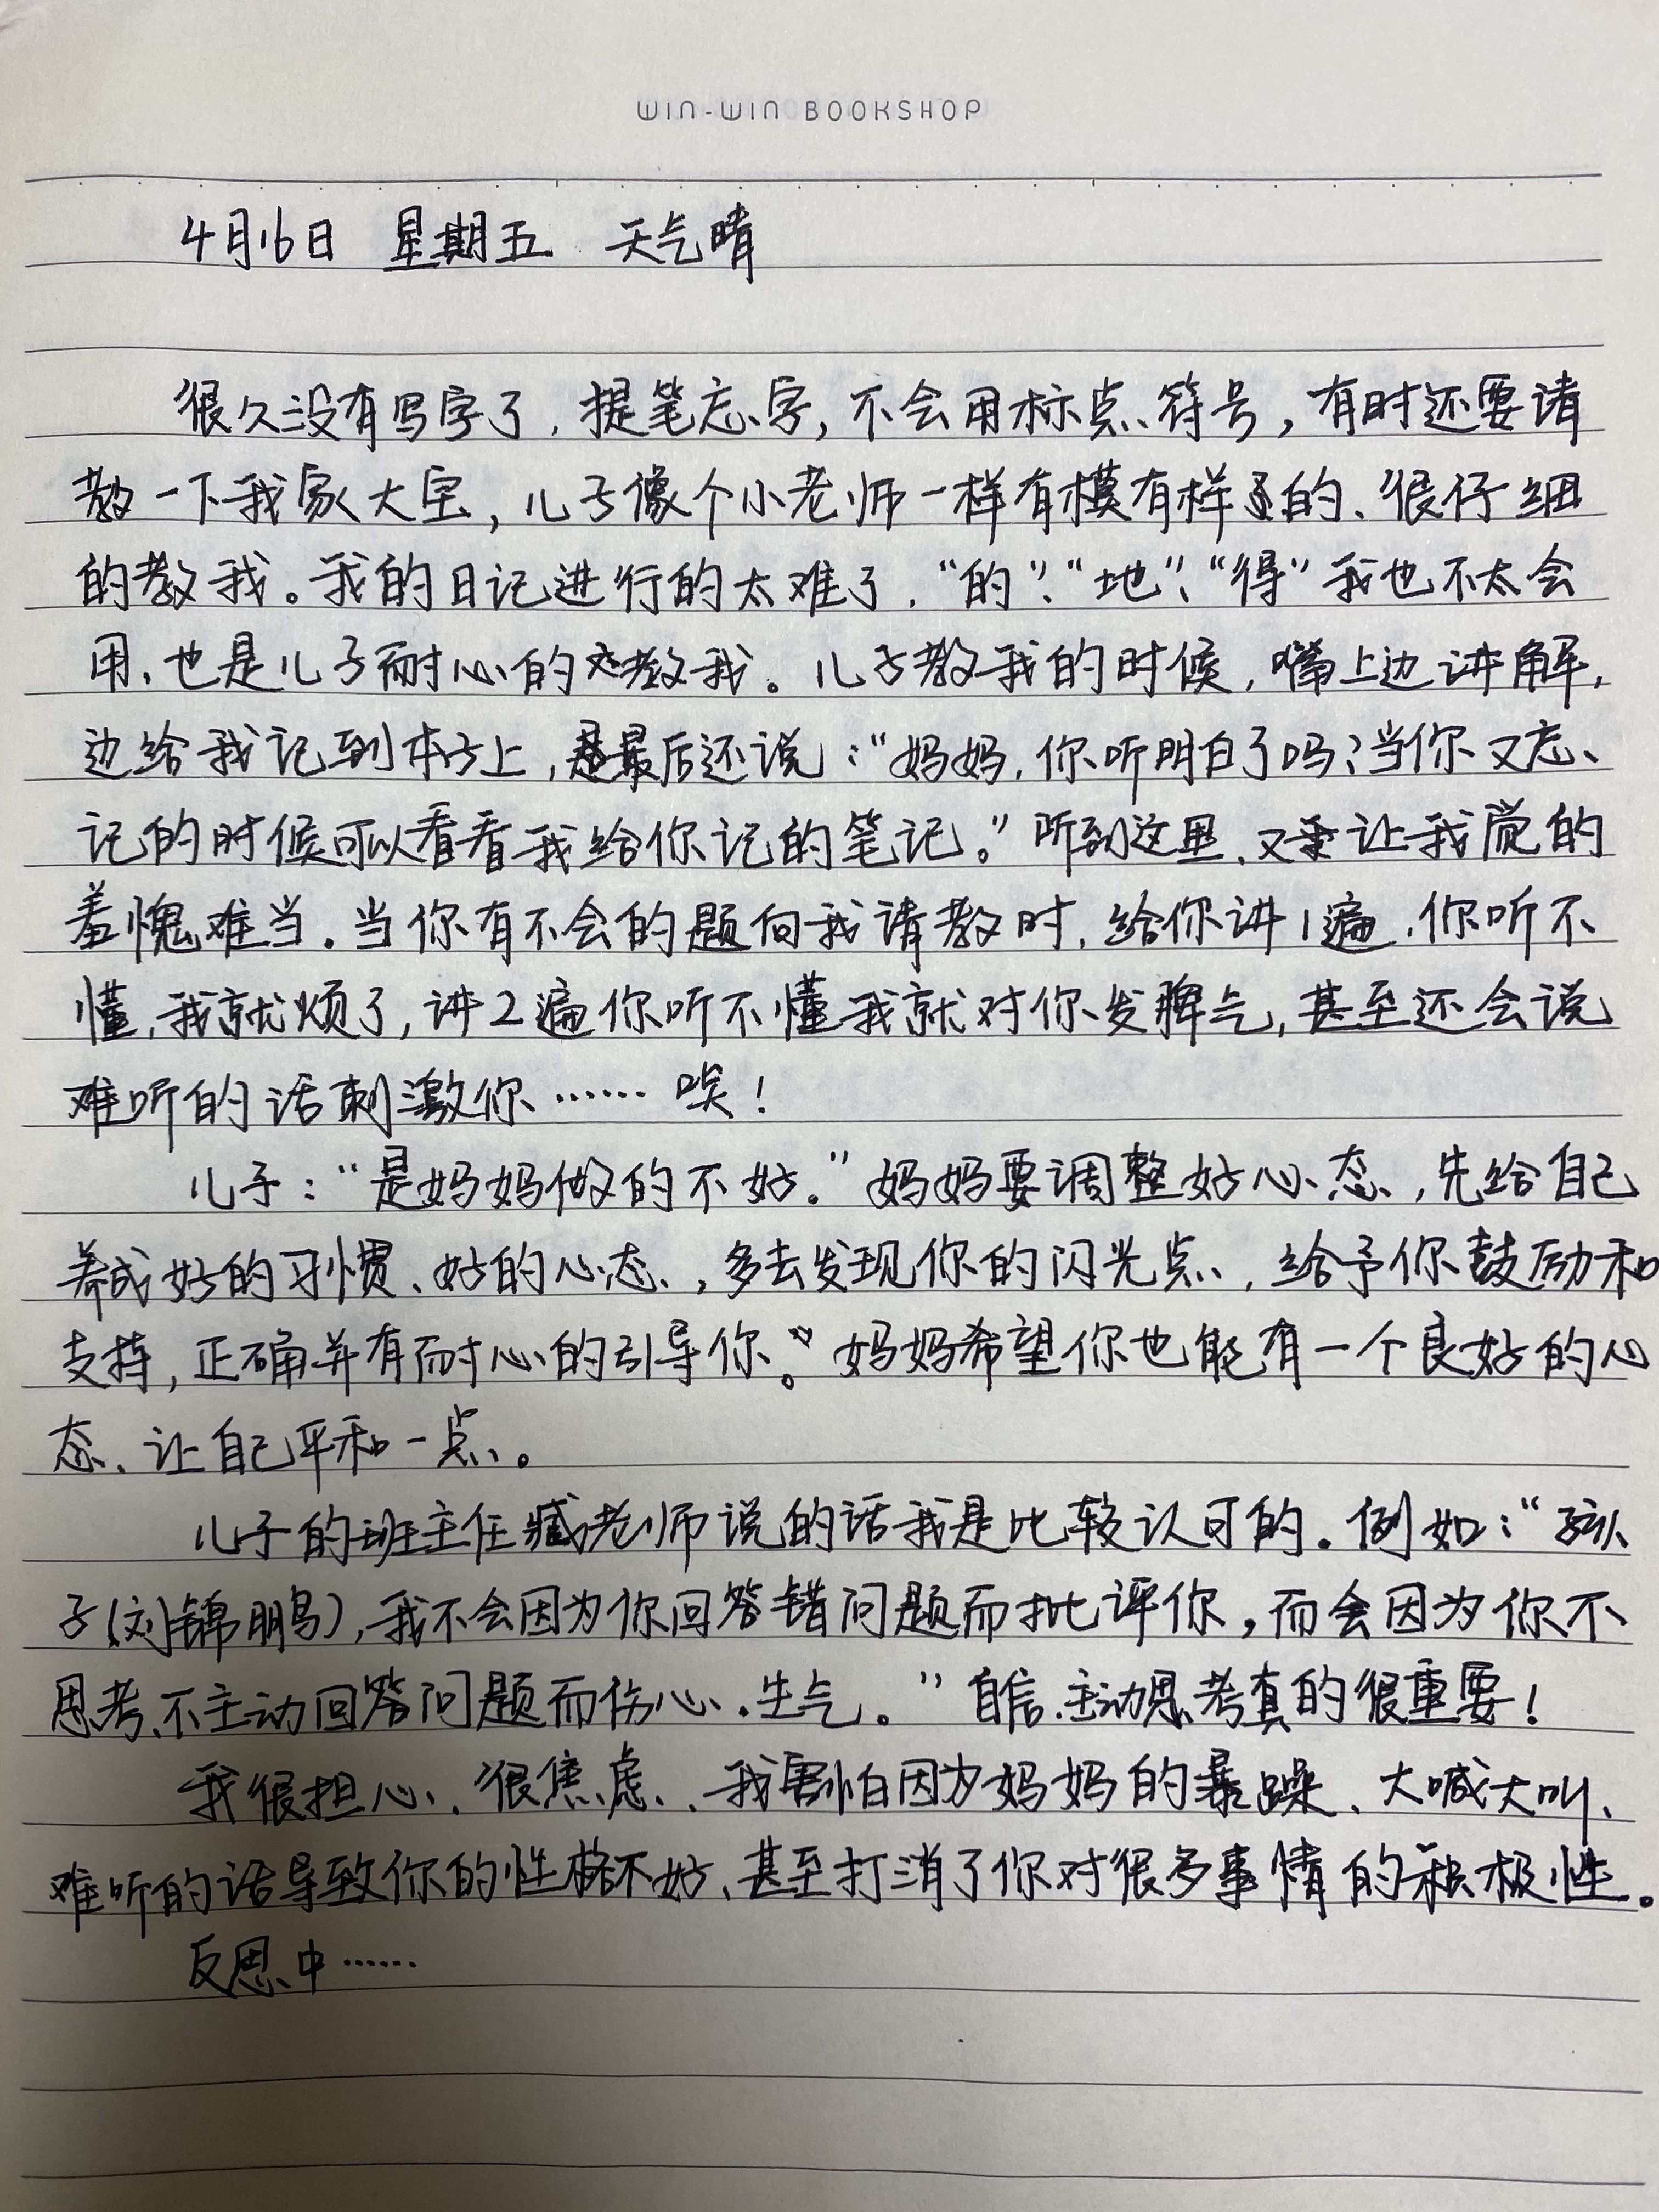 WIN-WIN BOOKSHOP
4月16日 星期五 天气晴
很久没有写字了，提笔忘字，不会用标点符号，有时还要请
教一下我家大宝，儿子像个小老师一样有模有样的、很仔细
的教我。我的日记进行的太难了，“的”、“地”、“得”我也不太会
用、也是儿子耐心的教我。儿子教我的时候，嘴上边讲解，
边给我记到本子上，最后还说：“妈妈，你听明白了吗？当你又忘
记的时候可以看看我给你记的笔记。”听到这里、又让我觉的
羞愧难当。当你有不会的题向我请教时，给你讲1遍，你听不
懂，我就烦了，讲2遍你听不懂我就对你发脾气，甚至还会说
难听的话刺激你……唉！
儿子：“是妈妈做的不好。”妈妈要调整好心态，先给自己
养成好的习惯、好的心态，多去发现你的闪光点，给予你鼓励和
支持，正确并有耐心的引导你。”妈妈希望你也能有一个良好的心
态、让自己平和一点。
儿子的班主任臧老师说的话我是比较认可的。例如：“孩
子（刘锦鹏），我不会因为你回答错问题而批评你，而会因为你不
思考、不主动回答问题而伤心、生气。”自信、主动思考真的很重要！
我很担心、很焦虑、我害怕因为妈妈的暴躁、大喊大叫、
难听的话导致你的性格不好、甚至打消了你对很多事情的积极性。
反思中……